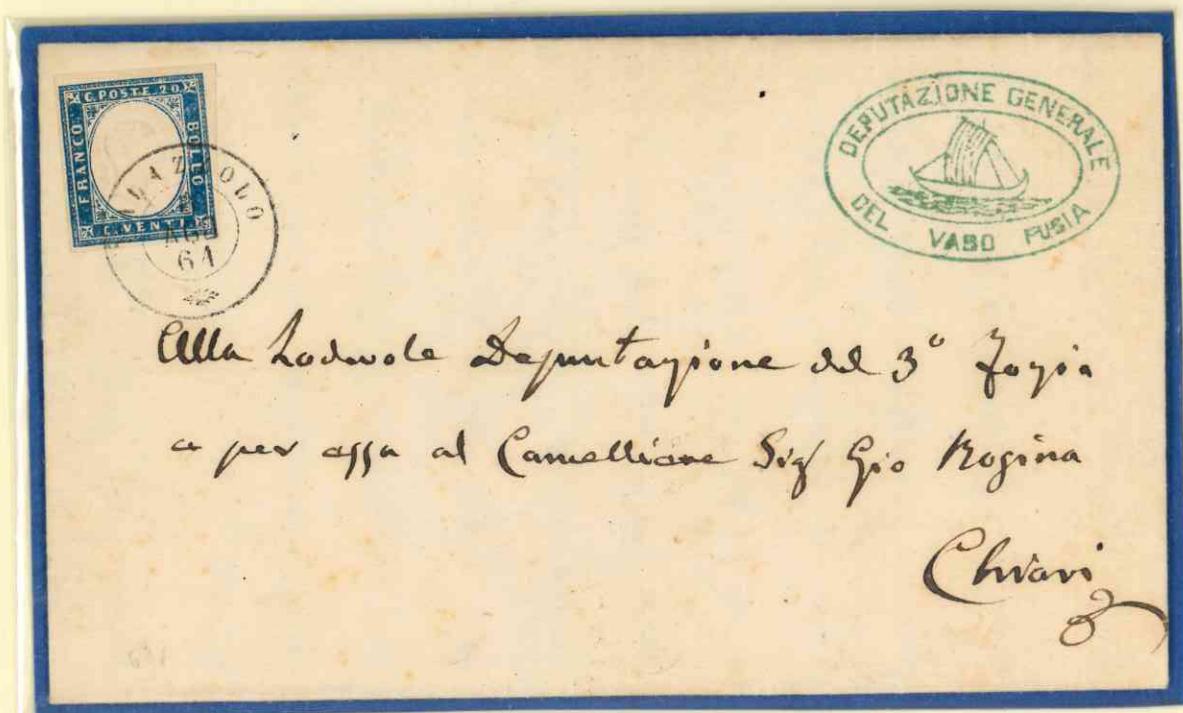 C. POSTE. 20
FRANCO
BOLLO
C. VENTI
PALAZZOLO
AGO
61
DEPUTAZIONE GENERALE
DEL VASO FUSIA
Alla Lodevole Deputazione del 3º Fozia
e per essa al Cancelliere Sigr Gio Rogina
Chiari